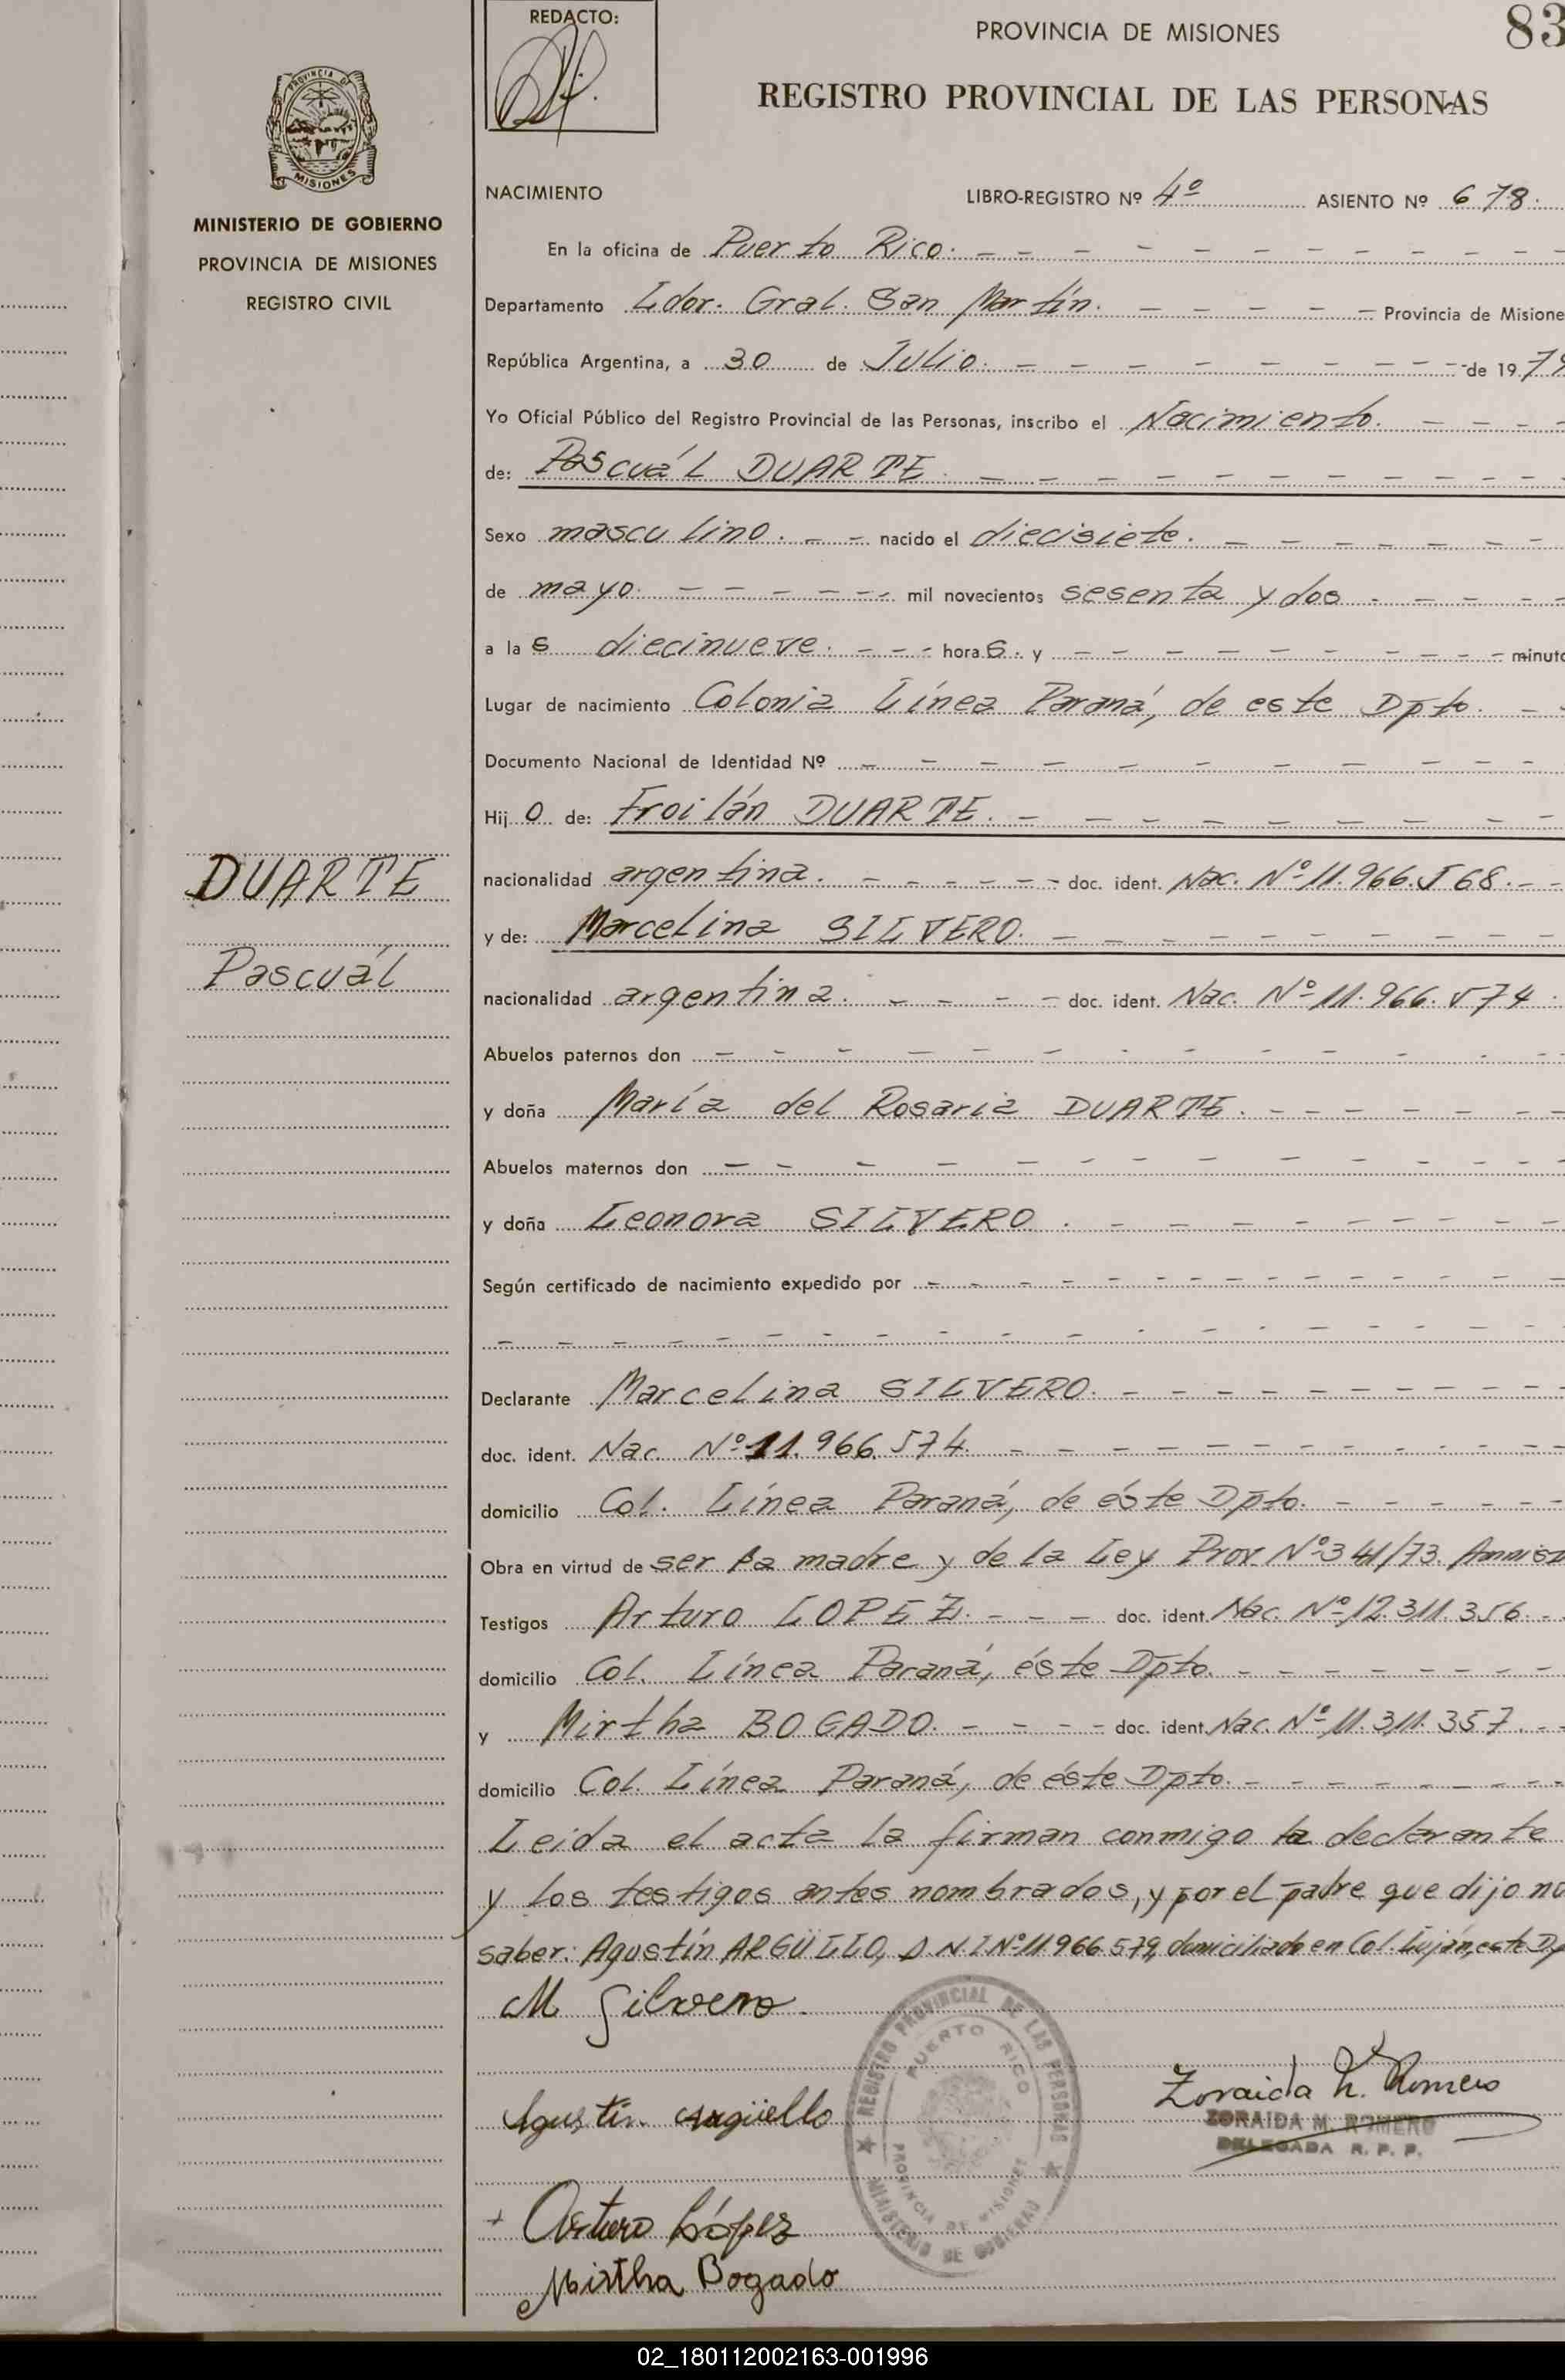 REDACTO:
PROVINCIA DE MISIONES
83
REGISTRO PROVINCIAL DE LAS PERSONAS
PROVINCIA DE MISIONES
MINISTERIO DE GOBIERNO
PROVINCIA DE MISIONES
REGISTRO CIVIL
NACIMIENTO LIBRO-REGISTRO Nº 4º ASIENTO Nº 678.
En la oficina de Puerto Rico.
Departamento Ldor. Gral. San Martín. Provincia de Misione
República Argentina, a 30 de Julio. de 19
Yo Oficial Público del Registro Provincial de las Personas, inscribo el Nacimiento.
de: Pascuál DUARTE
Sexo masculino. nacido el diecisiete.
de mayo. mil novecientos sesenta y dos
a las diecinueve. horas. y minuto
Lugar de nacimiento Colonia Línea Paraná, de este Dpto.
Documento Nacional de Identidad Nº
Hijo de: Froilán DUARTE.
DUARTE
Pascuál
nacionalidad argentina. doc. ident. Nac. Nº 11.966.568.
y de: Marcelina SILVERO.
nacionalidad argentina. doc. ident. Nac. Nº 11.966.574
Abuelos paternos don
y doña María del Rosaria DUARTE.
Abuelos maternos don
y doña Leonora SILVERO.
Según certificado de nacimiento expedido por
Declarante Marcelina SILVERO.
doc. ident. Nac. Nº 11.966.574.
domicilio Col. Línea Paraná, de éste Dpto.
Obra en virtud de ser la madre y de la Ley Prov Nº 341/73.
Testigos Arturo LOPEZ. doc. ident. Nac. Nº 12.311.356.
domicilio Col. Línea Paraná, éste Dpto.
y Mirtha BOGADO. doc. ident. Nac. Nº 11.311.357.
domicilio Col. Línea Paraná, de éste Dpto.
Leida el acta la firman conmigo la declarante
y los testigos antes nombrados, y por el padre que dijo no
saber: Agustín ARGÜELLO, D N I Nº 11.966.579, domiciliado en Col. Luján, este Dp
M Silvero.
Agustín Argüello
Zoraida M. Romero
ZORAIDA M. ROMERO
DELEGADA R. P. P.
REGISTRO PROVINCIAL DE LAS PERSONAS
PUERTO RICO
PROVINCIA DE MISIONES
MINISTERIO DE GOBIERNO
+ Arturo López
Mirtha Bogado
02_180112002163-001996